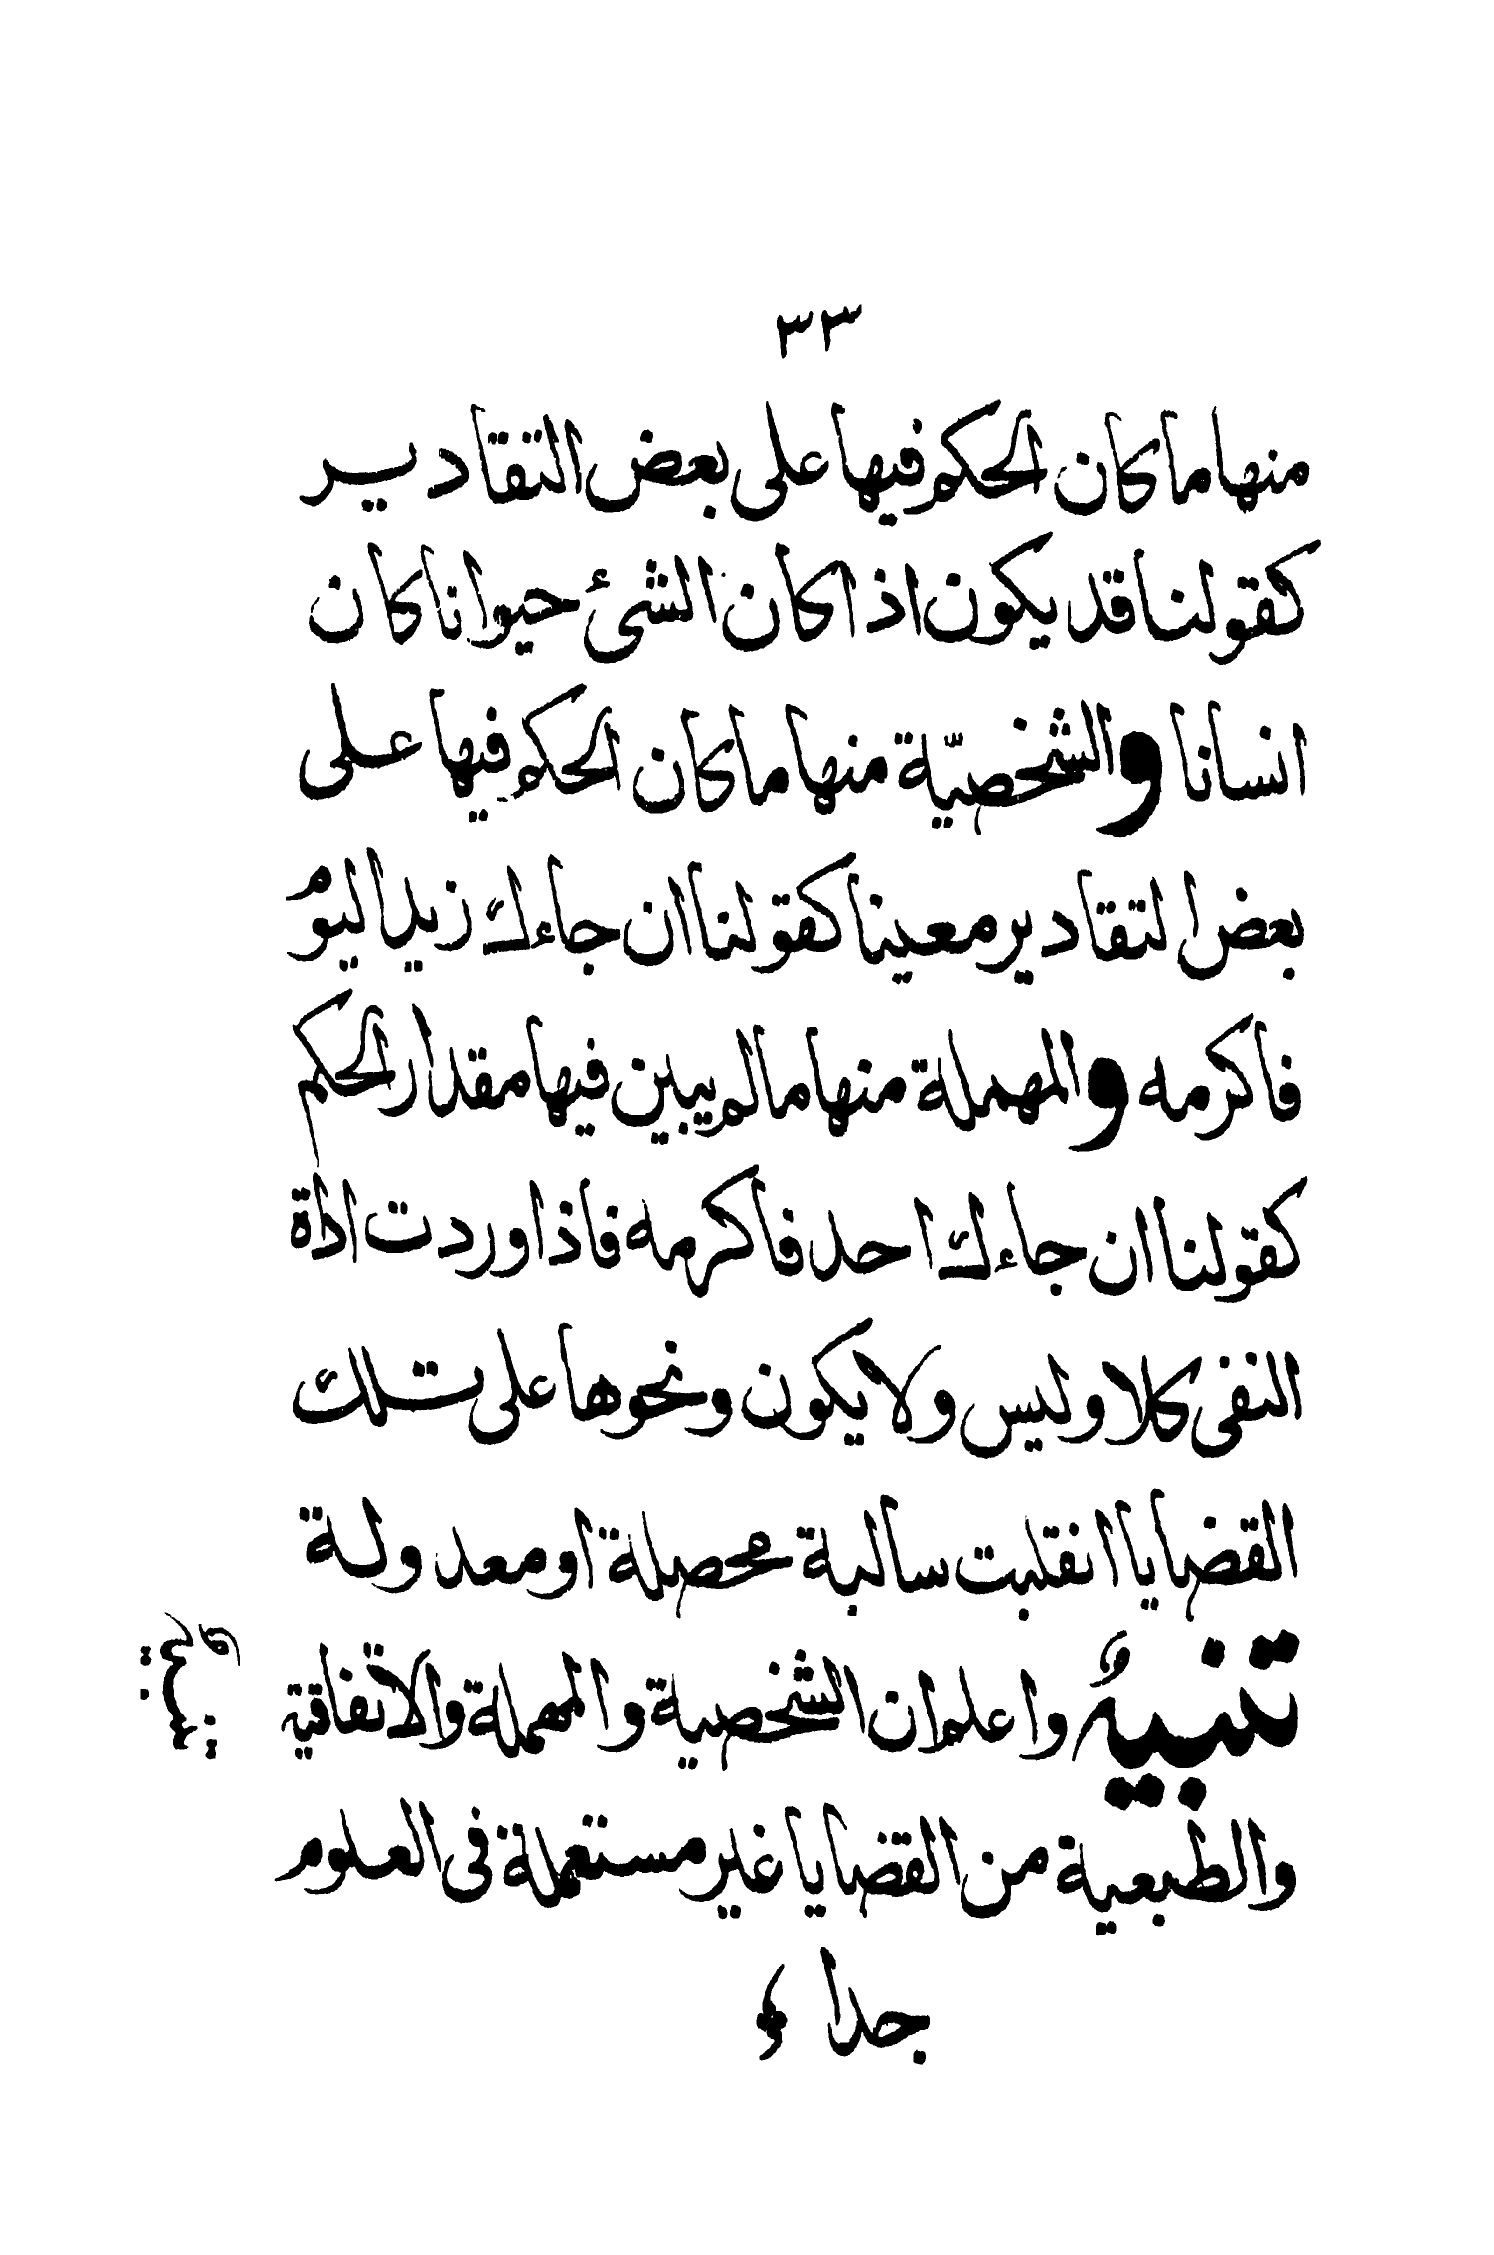 ٣٣
منها ما كان الحكم فيها على بعض التقادير
كقولنا قد يكون اذا كان الشئ حيوانا كان
انسانا والشخصيّة منها ما كان الحكم فيها على
بعض التقادير معينا كقولنا ان جاءك زيد اليوم
فاكرمه والمهملة منها ما لم يبين فيها مقدار الحكم
كقولنا ان جاءك احد فاكرمه فاذا اوردت اداة
النفى كلا وليس ولا يكون ونحوها على تلك
القضايا انقلبت سالبة محصلة او معدولة
تنبيهٌ واعلم ان الشخصية والمهملة والاتفاقية
والطبعية من القضايا غير مستعملة فى العلوم
جدا